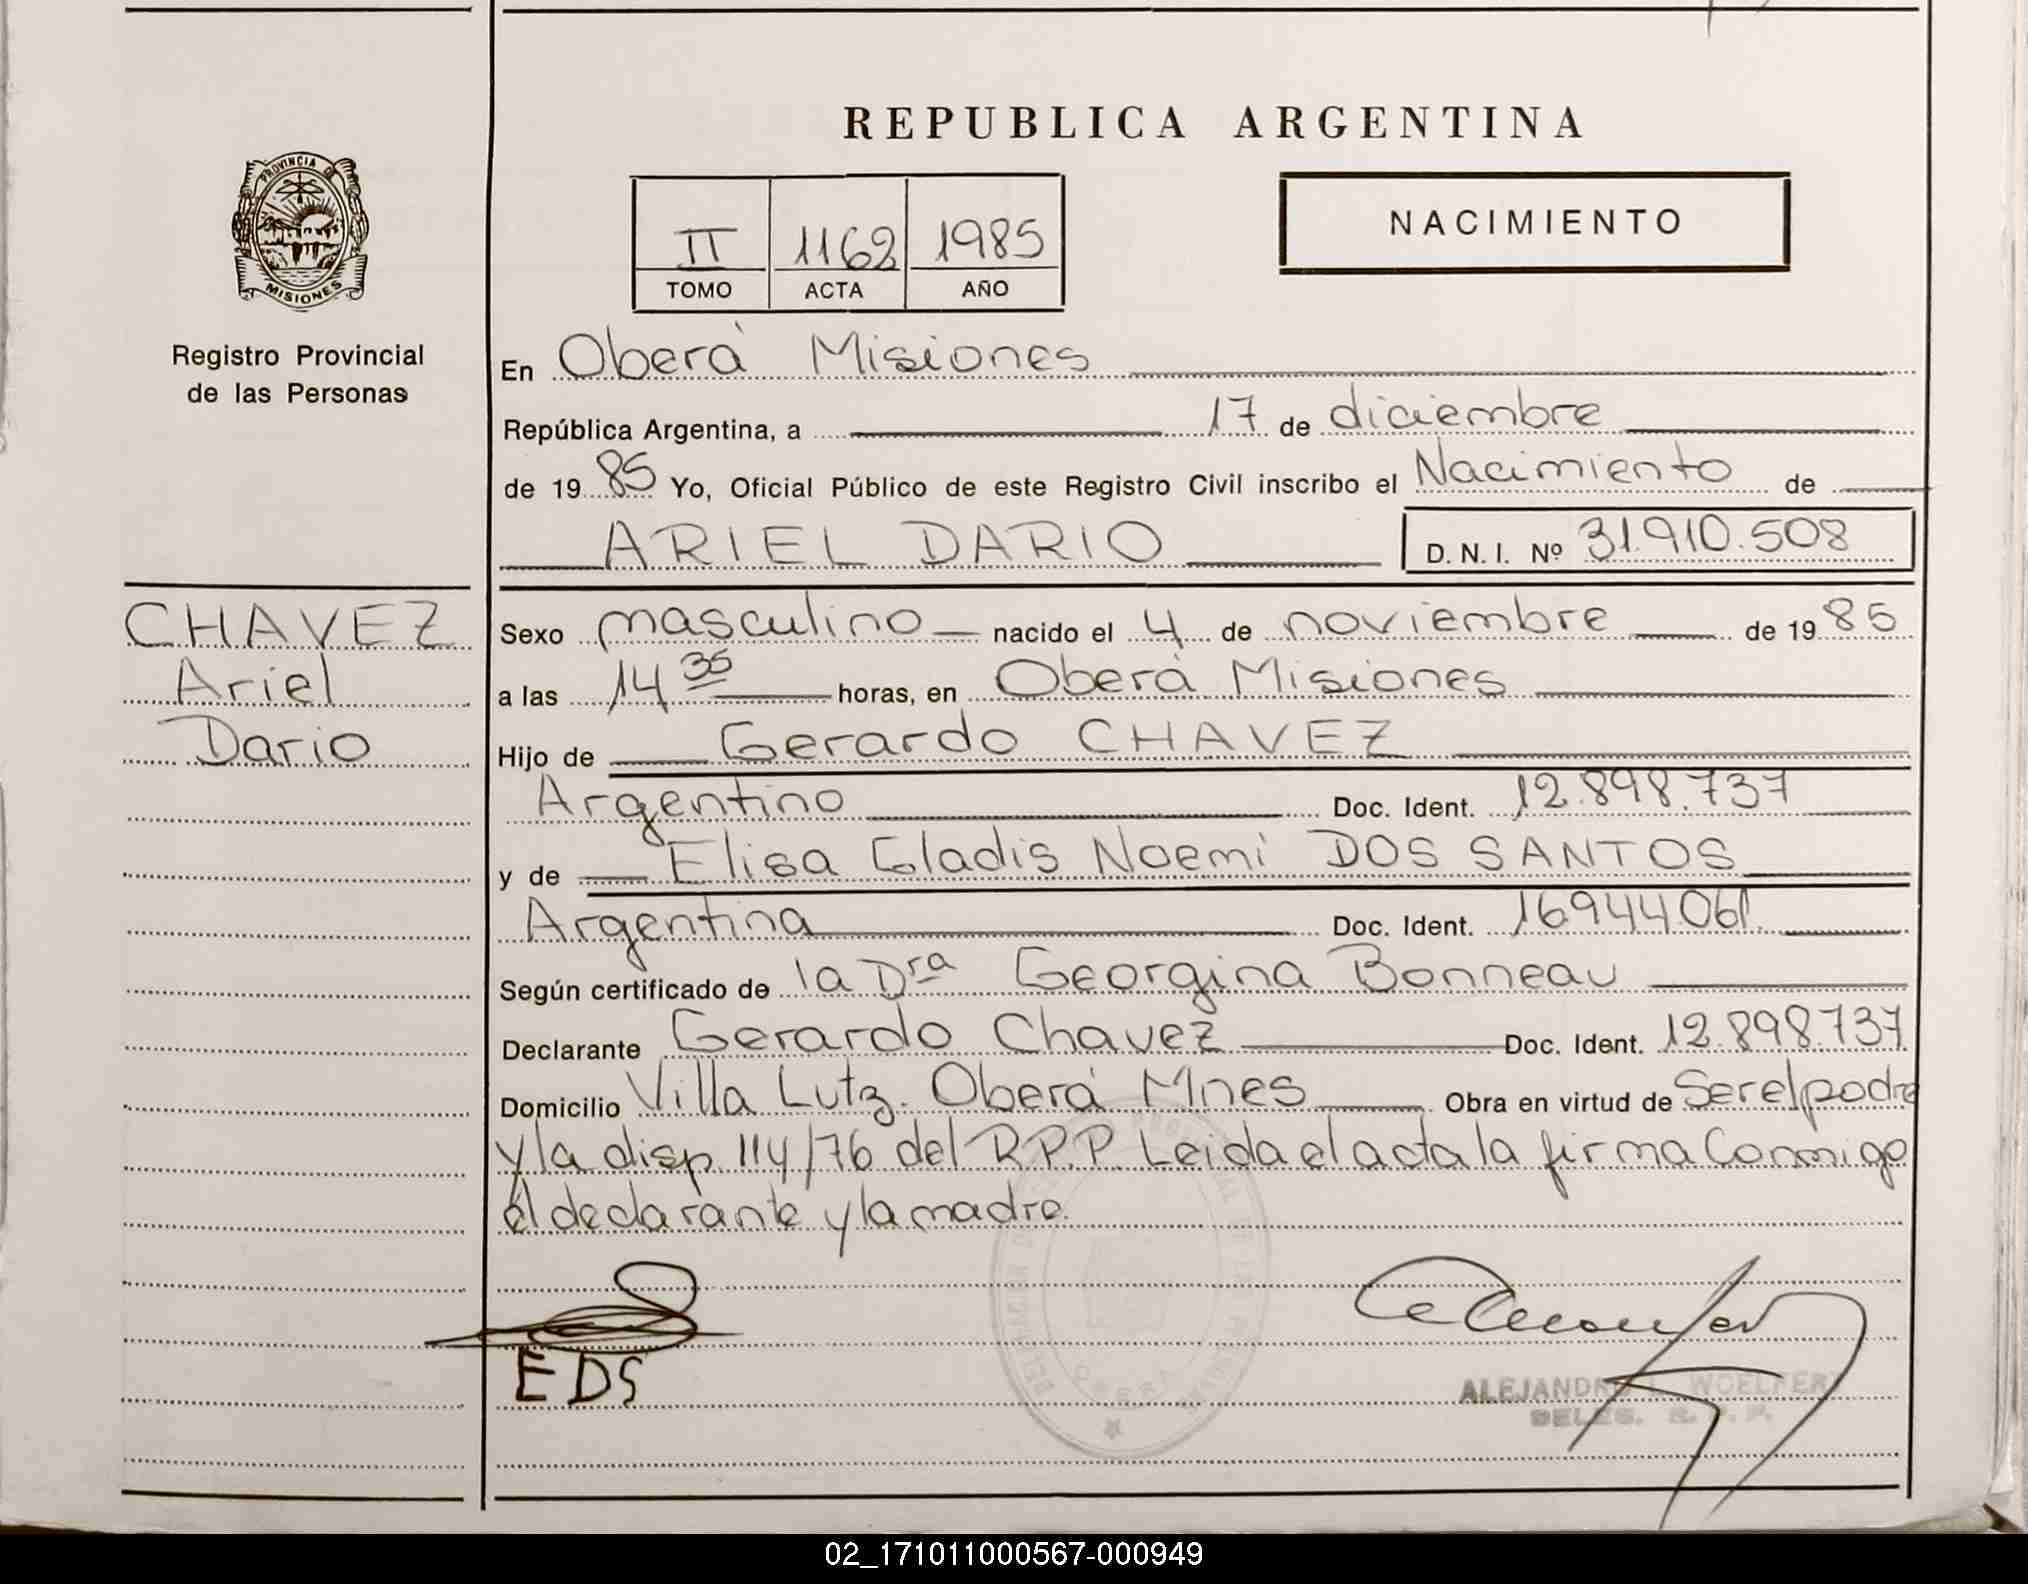 REPUBLICA ARGENTINA
PROVINCIA DE
MISIONES
Registro Provincial
de las Personas
II 1162 1985
TOMO ACTA AÑO
NACIMIENTO
En Oberá Misiones
República Argentina, a 17 de diciembre
de 1985 Yo, Oficial Público de este Registro Civil inscribo el Nacimiento de
ARIEL DARIO D. N. I. Nº 31.910.508
CHAVEZ
Ariel
Dario
Sexo masculino nacido el 4 de noviembre de 1985
a las 14 35 horas, en Oberá Misiones
Hijo de Gerardo CHAVEZ
Argentino Doc. Ident. 12.898.737
y de Elisa Gladis Noemi DOS SANTOS
Argentina Doc. Ident. 16944061.
Según certificado de la Dra Georgina Bonneau
Declarante Gerardo Chavez Doc. Ident. 12.898.737
Domicilio Villa Lutz. Oberá Mnes Obra en virtud de Ser el padre
y la disp. 114/76 del R.P.P. Leida el acta la firma Conmigo
él declarante y la madre.
EDS
ALEJANDRO L. WOELFERT
DELEG. R. P. P.
02_171011000567-000949